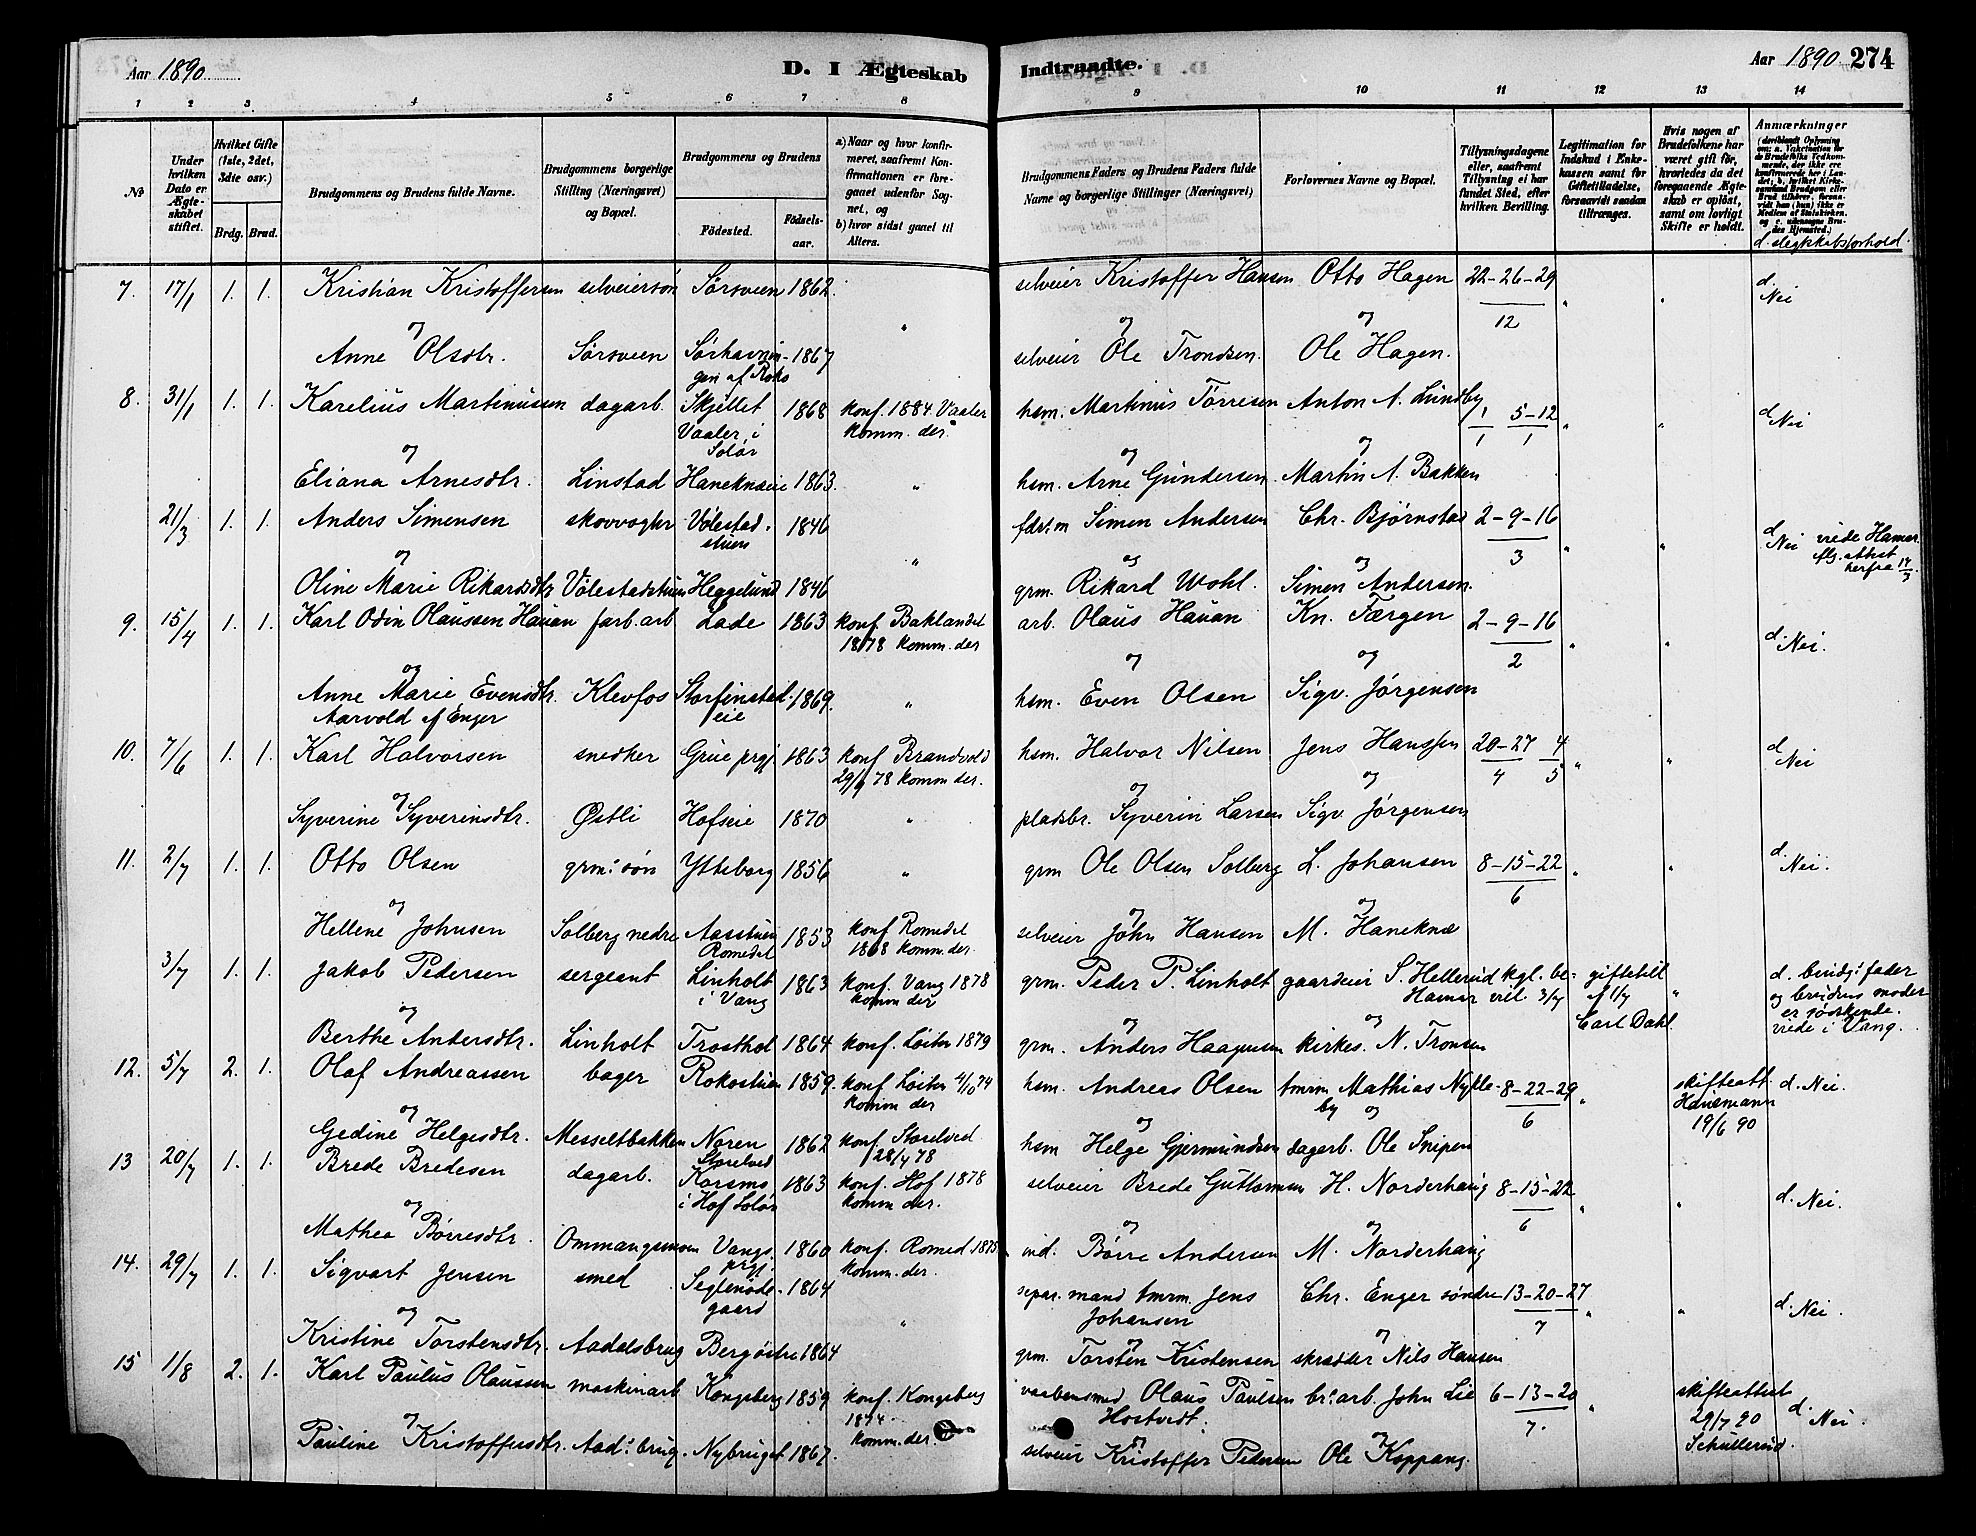 Aar 1890
D. I Ægteskab
Indtraadte.
Aar 1890 274
1 2 3 4 5 6 7 8 9 10 11 12 13 14
No
Under hvilken Dato er Ægteskabet stiftet.
Hvilket Gifte (1ste, 2det, 3die osv.)
Brdg. Brud.
Brudgommens og Brudens fulde Navne.
Brudgommens borgerlige Stilling (Næringsvei) og Bopæl.
Brudgommens og Brudens
Fødested. Fødselsaar.
a) Naar og hvor konfirmeret, saafremt Konfirmationen er foregaaet udenfor Sognet, og
b) hvor sidst gaaet til Alters.
Brudgommens Faders og Brudens Faders fulde Navne og borgerlige Stillinger (Næringsvei)
Forlovernes Navne og Bopæl.
Tillysningsdagene eller, saafremt Tillysning ei har fundet Sted, efter hvilken Bevilling.
Legitimation for Indskud i Enkekassen samt for Giftetilladelse, forsaavidt saadan tiltrænges.
Hvis nogen af Brudefolkene har været gift før, hvorledes da det foregaaende Ægteskab er opløst, samt om lovligt Skifte er holdt.
Anmærkninger
d. slegtskabsforhold.
7. 17/1 1. 1. Kristian Kristoffersen selveiersøn Sørsveen 1862. selveier Kristoffer Hansen Otto Hagen 22-26-29 d. Nei
og " og og 12
Anne Olsdtr. Sørsveen Sørhavningen af Roko 1867 selveier Ole Trondsen. Ole Hagen.
8. 31/1 1. 1. Karelius Martinusen dagarb. Skjellet Vaaler i Solør 1868 konf. 1884 Vaaler komm. der. hsm. Martinus Tørresen Anton A. Lundby 1/1 5-12/1 " " d. Nei
og og og
Eliana Arnesdtr. Linstad Haneknæeie 1863. " hsm. Arne Gundersen Martin A. Bakken
21/3 1. 1. Anders Simensen skovvogter Vølestadstuen 1846 fdstm Simen Andersen Chr. Bjørnstad 2-9-16/3 " " d. Nei viede Hamar flg. attest herfra 17/3.
og " og og
Oline Marie Rikardsdtr. Vølestadstuen Heggelund 1846 grm. Rikard Wohl. Simen Andersen.
9. 15/4 1. 1. Karl Odin Olaussen Hauan farb. arb Lade 1863 konf Baklandet 1878 komm. der arb. Olaus Hauan Kn. Færgen 2-9-16/2 " " d. Nei.
og og og
Anne Marie Evensdtr. Aarvold af Enger Klevfos Storfinstadeie 1869. " hsm. Even Olsen Sigv. Jørgensen
10. 7/6 1. 1. Karl Halvorsen snedker Grue prgj. 1863 konf Brandvold 29/9 78 komm der. hsm. Halvor Nilsen Jens Hanssen 20-27/4 4/5 " " d. Nei
og og og
Syverine Syverinsdtr. Østli Hofseie 1870 " pladsbr. Syverin Larsen Sigv. Jørgensen
11. 2/7 1. 1. Otto Olsen grm: søn Ytteborg 1856 " grm Ole Olsen Solberg L. Johansen 8-15-22/6 " " d. Nei.
og og og
Hellene Johnsen Solberg nedre Aasstuen Romedal 1853 konf Romedal 1868 komm. der. selveier John Hansen M. Haneknæ
3/7 1. 1. Jakob Pedersen sergeant Linholt i Vang 1863 konf. Vang 1878 komm der grm. Peder P. Linholt gaardeier S. Hellerud Hamar kgl. bevil. 3/7 giftetil af 1/7 Carl Dahl " d. brudg: fader og brudens moder er søskende. viede i Vang.
og og og
Berthe Andersdtr. Linholt Trosthol 1864 konf. Løiten 1879 grm. Anders Haagensen kirkes. N. Tronsen
12. 5/7 2. 1. Olaf Andreassen bager Rokostuen 1859. konf Løiten 4/10 74 komm der hsm. Andreas Olsen tmrm Mathias Nykleby 8-22-29/6 " skifteatt. Hansemann 19/6 90 d. Nei.
og og og
Gedine Helgesdtr. Messeltbakken Noren Storelved 1862 konf. Storelved 28/7 78 hsm Helge Gjermundsen dagarb. Ole Snipen
13 20/7 1. 1. Brede Bredesen dagarb. Korsmo i Hof Solør 1863 konf. Hof 1878 komm der. selveier Brede Guttormsen H. Norderhaug 8-15-22/6 " " d. Nei.
og og og
Mathea Børresdtr. Ommangsmoen Vangs prgj. 1860 konf. Romed 1875 komm. der. ind. Børre Andersen M. Norderhaug
14. 29/7 1. 1. Sigvart Jensen smed Seglenødegaard 1864 separ. mand tmrm. Jens Johansen Chr. Enger søndre 13-20-27/7 " " d. Nei.
og " og og
Kristine Torstensdtr. Aadalsbrug Bergøstre 1864 grm. Torsten Kristensen skrædder Nils Hansen
15 1/8 2. 1. Karl Paulus Olaussen maskinarb Kongsberg 1859 konf. Kongsberg 1874. komm. der. vaabensmed Olaus Paulsen Hostvedt. br: arb. John Lie 6-13-20/7. " skifteattest 29/7 90 Schullerud. d. Nei.
og og og
Pauline Kristoffersdtr. Aad: brug. Nybruget 1867. selveier Kristoffer Pedersen Ole Koppang.